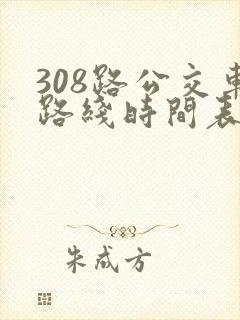 308路公交車
路綫時間表
朱成方